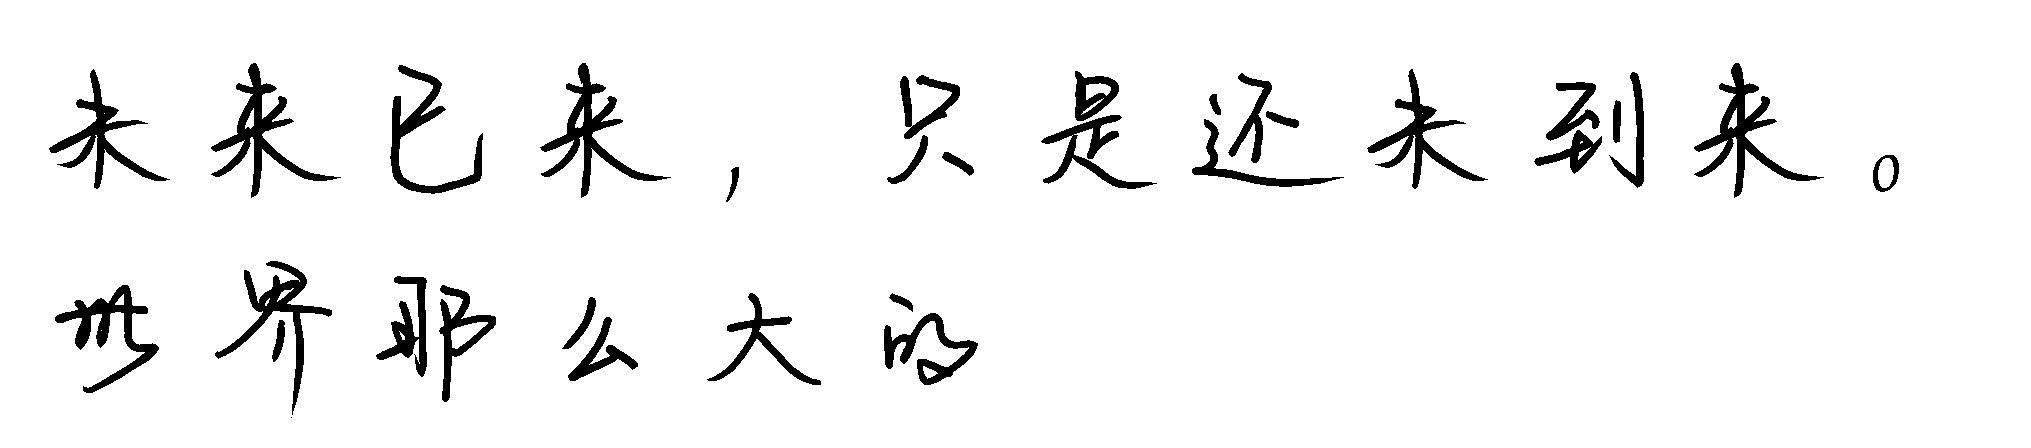 未来已来，只是还未到来。
世界那么大的